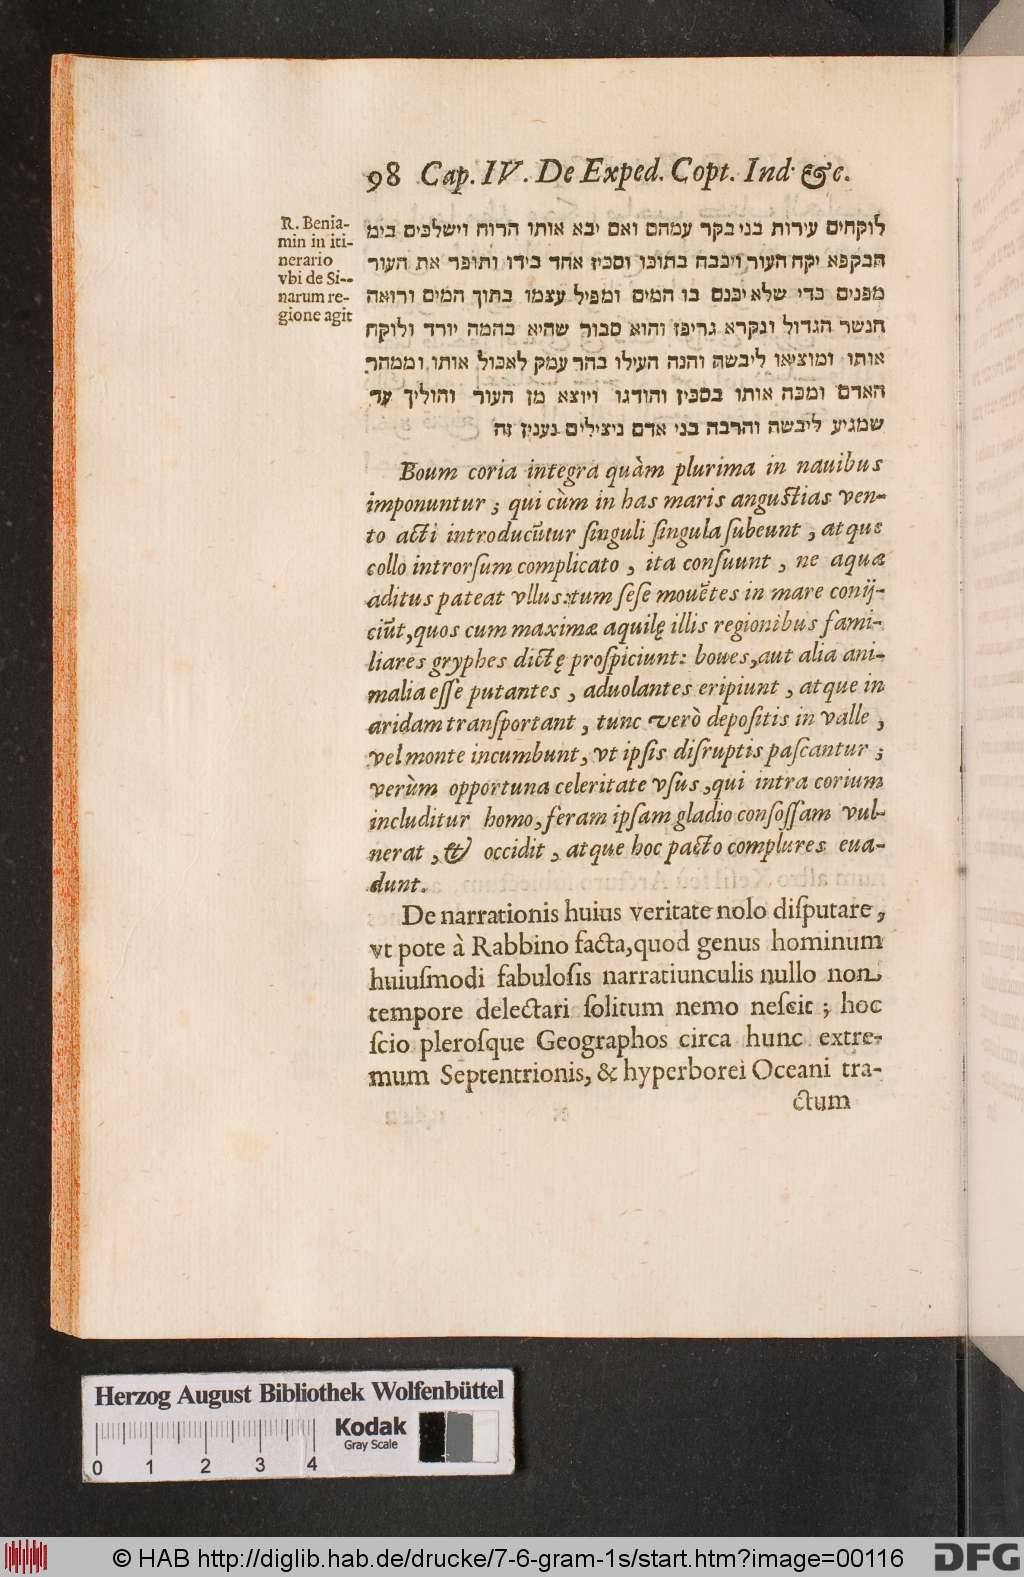 98 Cap. IV. De Exped. Copt. Ind. &c.
R. Benia-
min in iti-
nerario
vbi de Si-
narum re-
gione agit
לוקחים עירות בני בקר עמהם ואם יבא אותו הרוח וישלכים בימ
הנקפא יקח העור ויכבה בתוכו וסכין אחד בידו ותופר את העור
מפנים כדי שלא יכנם בו המים ומפיל עצמו בתוך המים ורואה
הנשר הגדול ונקרא גריפז והוא סבור שהיא בהמה יורד ולוקח
אותו ומוציאו ליבשה והנה העילו בהר עמק לאכול אותו וממהר
האדם ומכה אותו בסכין והודגו ויוצא מן העור והוליך עד
שמגיע ליבשה והרבה בני אדם ניצילים נענין זה
Boum coria integra quàm plurima in nauibus
imponuntur; qui cùm in has maris angustias ven-
to acti introducũtur ſinguli ſingula ſubeunt, atque
collo introrſum complicato, ita conſuunt, ne aquæ
aditus pateat vllus: tum ſeſe mouẽtes in mare conij-
ciũt, quos cum maximæ aquilę illis regionibus fami-
liares gryphes dictę proſpiciunt: boues, aut alia ani-
malia eſſe putantes, aduolantes eripiunt, atque in
aridam tranſportant, tunc verò depoſitis in valle,
vel monte incumbunt, vt ipſis diſruptis paſcantur;
verùm opportuna celeritate vſus, qui intra corium
includitur homo, feram ipſam gladio confoſſam vul-
nerat, & occidit, atque hoc pacto complures eua-
dunt.
De narrationis huius veritate nolo diſputare,
vt pote à Rabbino facta, quod genus hominum
huiuſmodi fabuloſis narratiunculis nullo non
tempore delectari ſolitum nemo neſcit; hoc
ſcio pleroſque Geographos circa hunc extre-
mum Septentrionis, & hyperborei Oceani tra-
ctum
Herzog August Bibliothek Wolfenbüttel
Kodak
Gray Scale
0 1 2 3 4
© HAB http://diglib.hab.de/drucke/7-6-gram-1s/start.htm?image=00116
DFG